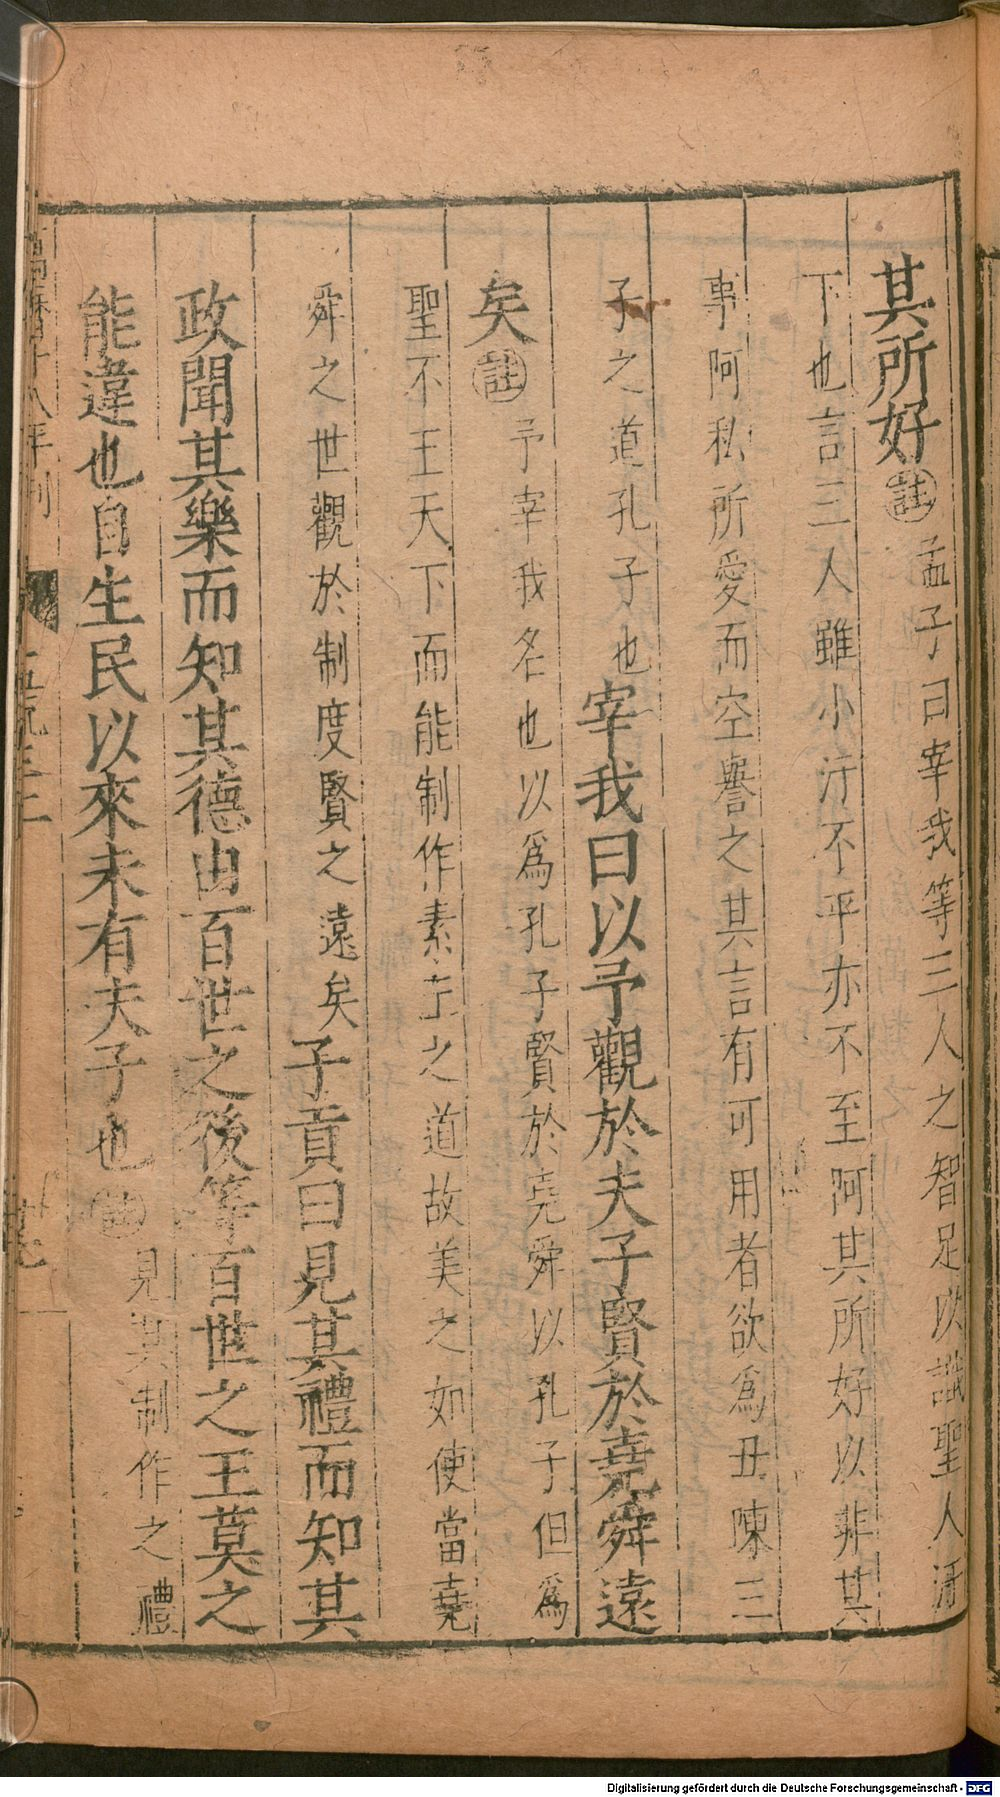 其所好註孟子曰宰我等三人之智足以識聖人汙
下也言三人雖小汙不平亦不至阿其所好以非其
事阿私所愛而空譽之其言有可用者欲爲丑陳三
子之道孔子也宰我曰以予觀於夫子賢於堯舜遠
矣註予宰我名也以爲孔子賢於堯舜以孔子但爲
聖不王天下而能制作素王之道故美之如使當堯
舜之世觀於制度賢之遠矣子貢曰見其禮而知其
政聞其樂而知其德由百世之後等百世之王莫之
能違也自生民以來未有夫子也註見其制作之禮
十八年刊
Digitalisierung gefördert durch die Deutsche Forschungsgemeinschaft - DFG